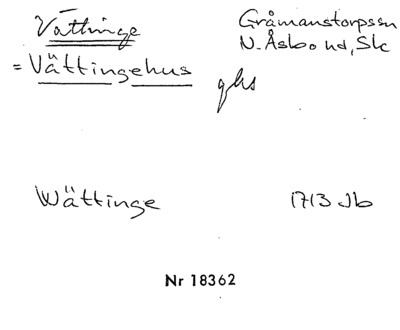 Vättinge Gråmanstorpssn
N. Åsbo hd, Sk
= Vättingehus ghs
Wättinge 1713 Jb
Nr 18362